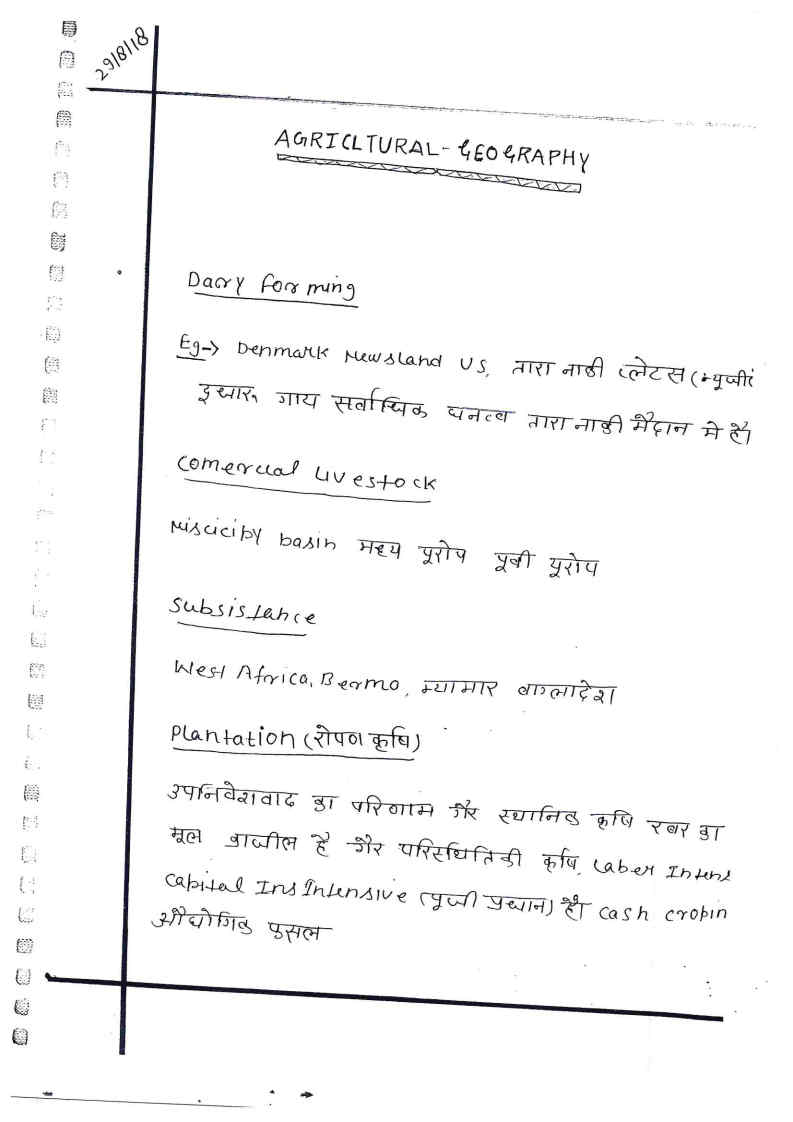 29/8/18
AGRICLTURAL-GEOGRAPHY
Dary forming
Eg-> Denmark Newsland US, तारा नाकी प्लेटस (न्यूजीं
दुधारू गाय सर्वाधिक घनत्व तारा नाकी मैदान मे है।
Comercial Livestock
Miscicipy basin मध्य यूरोप पूर्वी यूरोप
Subsistance
West Africa, Bermo, म्यामार बाग्लादेश
Plantation (रोपण कृषि)
उपनिवेशवाद का परिणाम गैर स्थानिक कृषि रबर का
मूल ब्राजील है गैर परिस्थितिकी कृषि, Laber Intens
Capital Ins Intensive (पूजी प्रधान) है। Cash cropin
औद्योगिक फसल